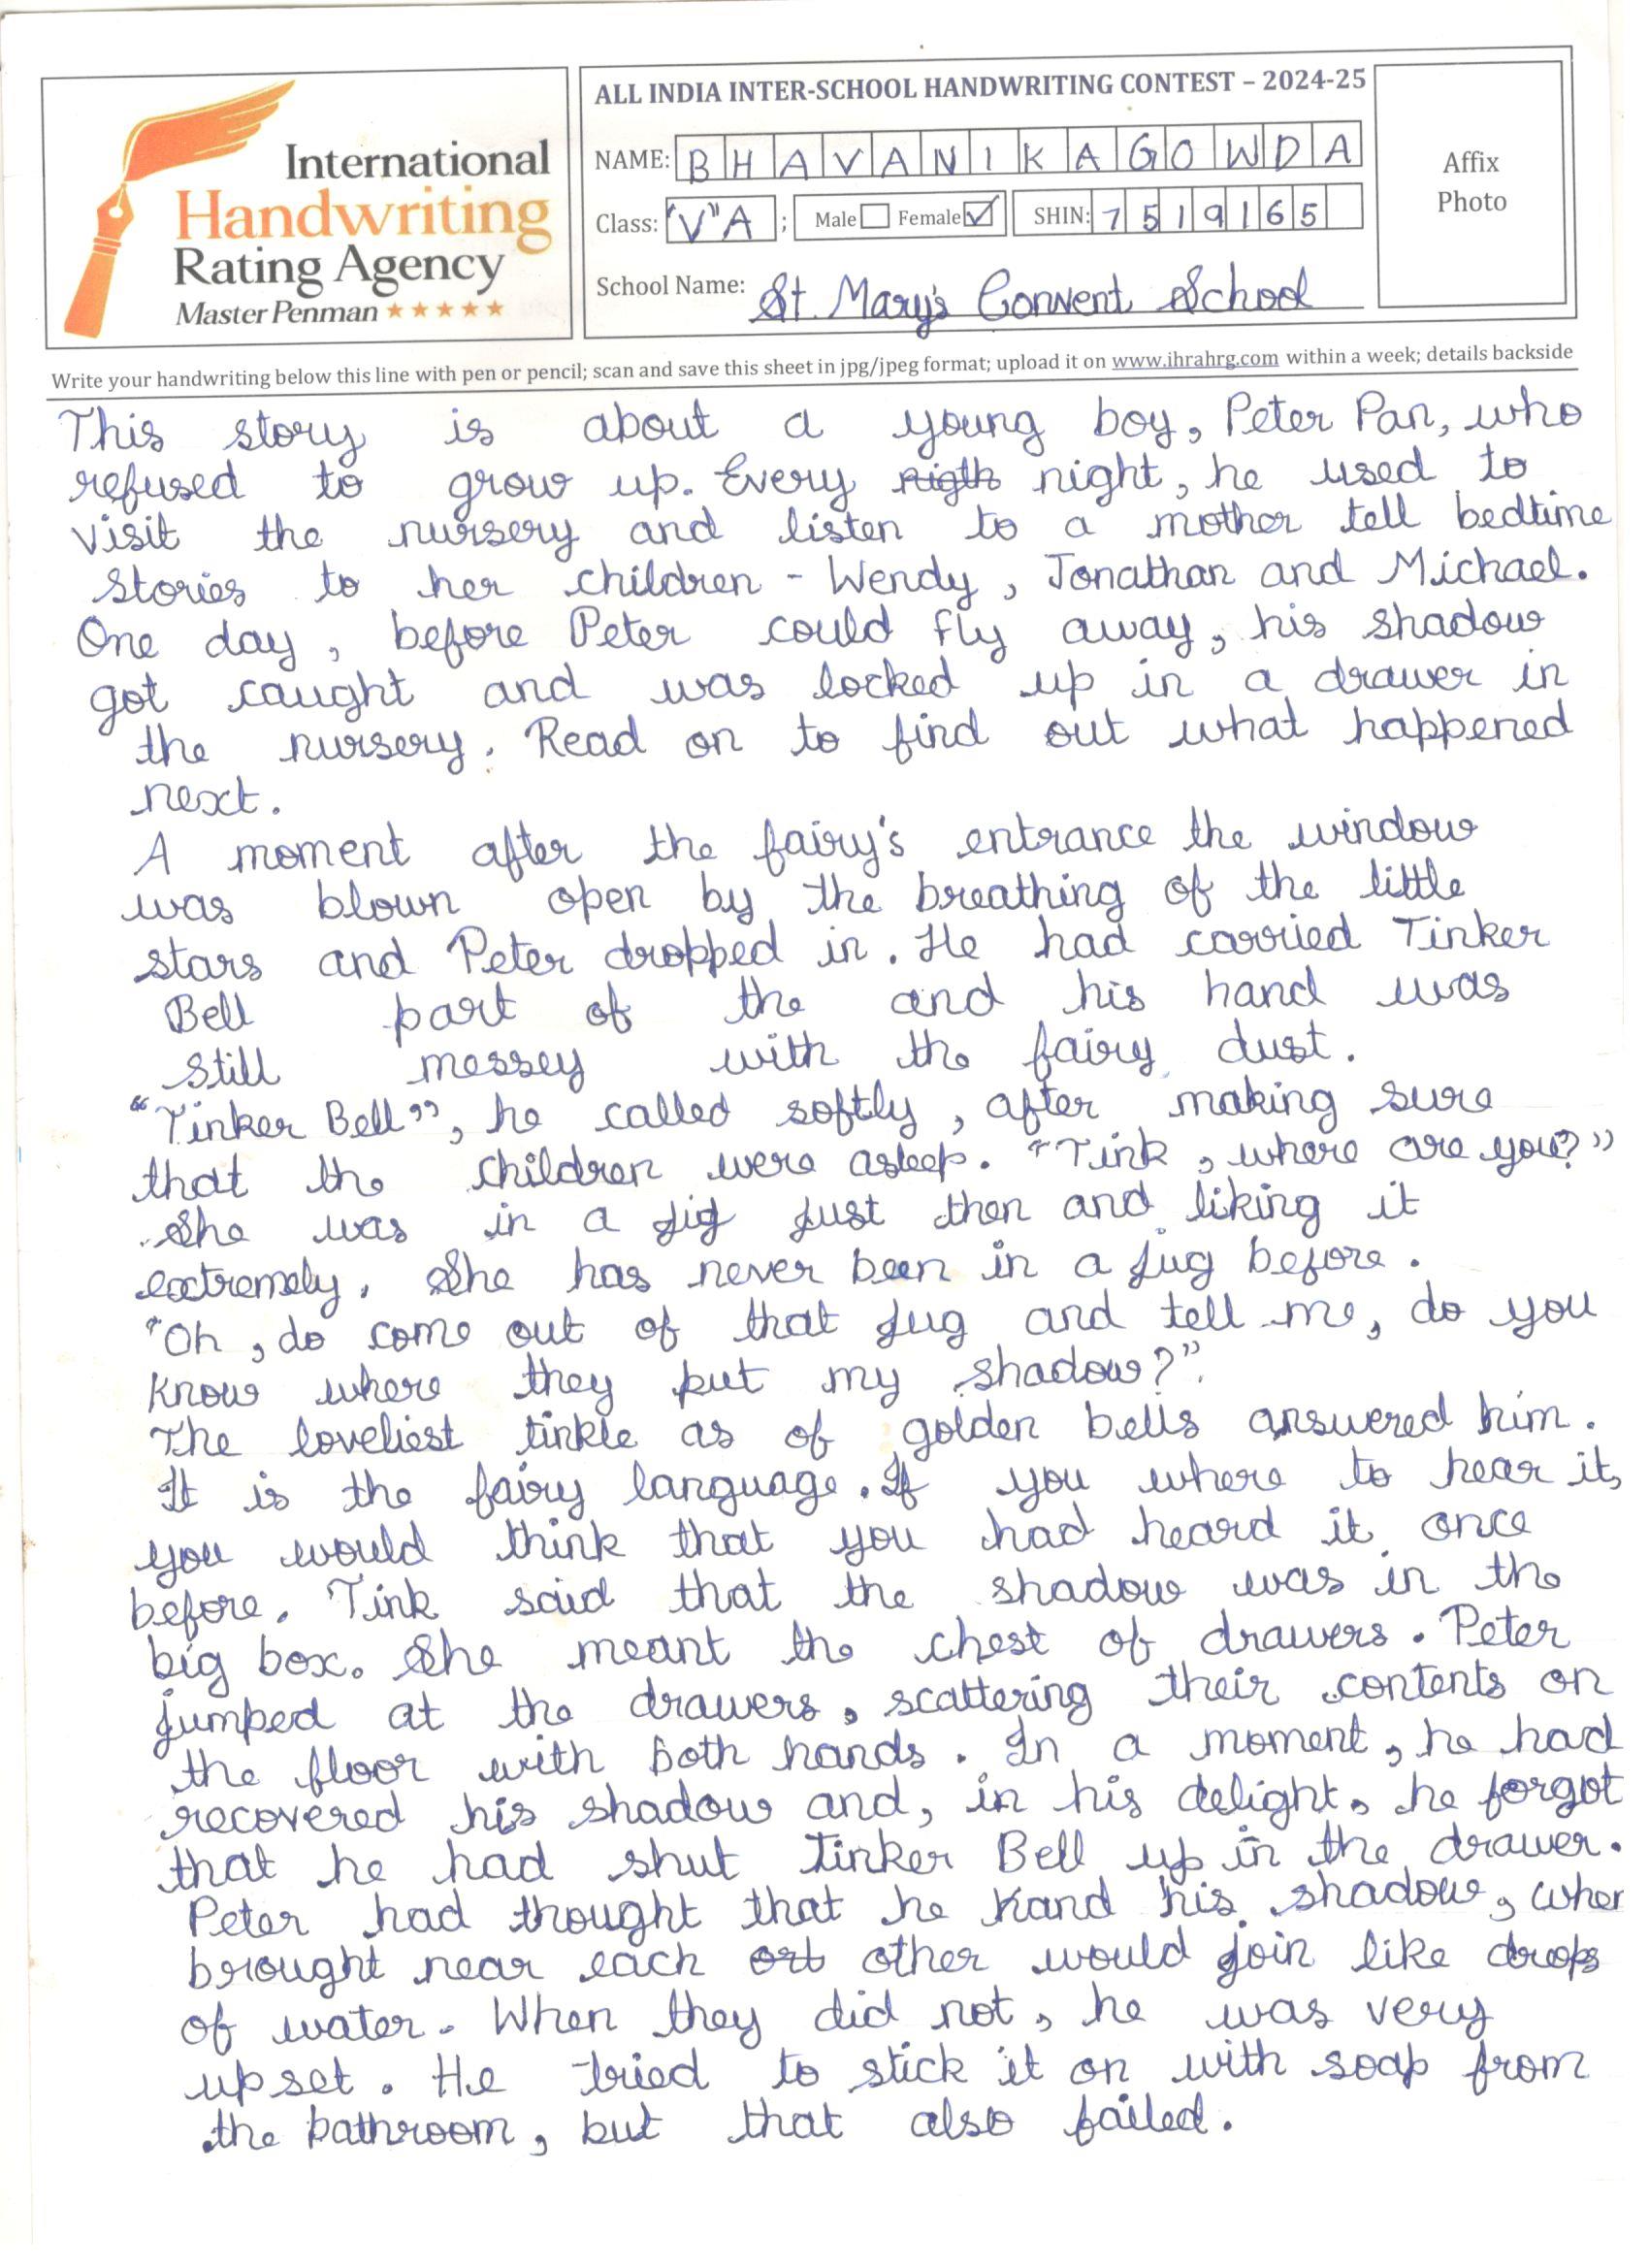 International
Handwriting
Rating Agency
Master Penman ★★★★★
ALL INDIA INTER-SCHOOL HANDWRITING CONTEST – 2024-25
NAME: BHAVANIKAGOWDA
Class: "V"A ; Male Female ✓ SHIN: 7519165
School Name: St. Mary's Convent School
Affix
Photo
Write your handwriting below this line with pen or pencil; scan and save this sheet in jpg/jpeg format; upload it on www.ihrahrg.com within a week; details backside
This story is about a young boy, Peter Pan, who
refused to grow up. Every nigth night, he used to
visit the nursery and listen to a mother tell bedtime
stories to her children - Wendy, Jonathan and Michael.
One day, before Peter could fly away, his shadow
got caught and was locked up in a drawer in
the nursery. Read on to find out what happened
next.
A moment after the fairy's entrance the window
was blown open by the breathing of the little
stars and Peter dropped in. He had carried Tinker
Bell part of the and his hand was
still messey with the fairy dust.
"Tinker Bell", he called softly, after making sure
that the children were asleep. "Tink, where are you?"
She was in a jig just then and liking it
extremely. She has never been in a jug before.
"Oh, do come out of that jug and tell me, do you
know where they put my shadow?"
The loveliest tinkle as of golden bells answered him.
It is the fairy language. If you where to hear it,
you would think that you had heard it once
before. Tink said that the shadow was in the
big box. She meant the chest of drawers. Peter
jumped at the drawers, scattering their contents on
the floor with both hands. In a moment, he had
recovered his shadow and, in his delight, he forgot
that he had shut Tinker Bell up in the drawer.
Peter had thought that he kand his shadow, when
brought near each ort other would join like drops
of water. When they did not, he was very
upset. He tried to stick it on with soap from
the bathroom, but that also failed.